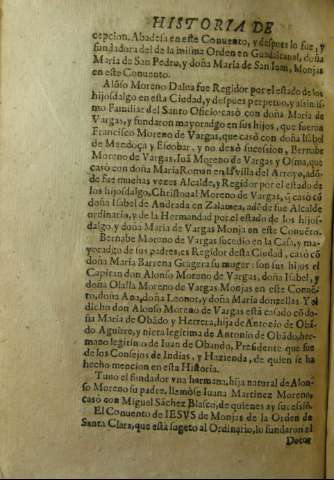 HISTORIA DE
cepcion, Abadesa en este Conuento, y despues lo fue, y
fundadora del de la misma Orden en Guadalcanal, doña
Maria de San Pedro, y doña Maria de San Iuan, Monjas
en este Conuento.
Alõso Moreno Dalua fue Regidor por el estado de los
hijosdalgo en esta Ciudad, y despues perpetuo, y assimis-
mo Familiar del Santo Oficio: casò con doña Maria de
Vargas, y fundaron mayoradgo en sus hijos, que fueron
Francisco Moreno de Vargas, que casò con doña Isabel
de Mendoça y Escobar, y no dexò sucession, Bernabe
Moreno de Vargas, Iuã Moreno de Vargas y Osma, que
casò con doña Maria Roman en la Villa del Arroyo, adõ-
de fue muchas vezes Alcalde, y Regidor por el estado de
los hijosdalgo, Christoual Moreno de Vargas, q̃ casò cõ
doña Isabel de Andrada en Zalamea, adõde fue Alcalde
ordinario, y de la Hermandad por el estado de los hijos-
dalgo, y doña Maria de Vargas Monja en este Conuẽto.
Bernabe Moreno de Vargas sucedio en la Casa, y ma-
yoradgo de sus padres, es Regidor desta Ciudad, casò cõ
doña Maria Barrena Gragera su muger: son sus hijos el
Capitan don Alonso Moreno de Vargas, doña Isabel, y
doña Olalla Moreno de Vargas Monjas en este Conuẽ-
to, doña Ana, doña Leonor, y doña Maria donzellas. Y el
dicho don Alonso Moreno de Vargas està casado cõ do-
ña Maria de Obãdo y Herrera, hija de Antonio de Obã-
do Aguirre, y nieta legitima de Antonio de Obãdo, her-
mano legitimo de Iuan de Obando, Presidente que fue
de los Consejos de Indias, y Hazienda, de quien se ha
hecho mencion en esta Historia.
Tuuo el fundador vna hermana, hija natural de Alon-
so Moreno su padre, llamòse Iuana Martinez Moreno,
casò con Miguel Sãchez Blasco, de quienes ay sucessiõ.
El Conuento de IESVS de Monjas de la Orden de
Santa Clara, que està sugeto al Ordinario, lo fundaron el
Dotor